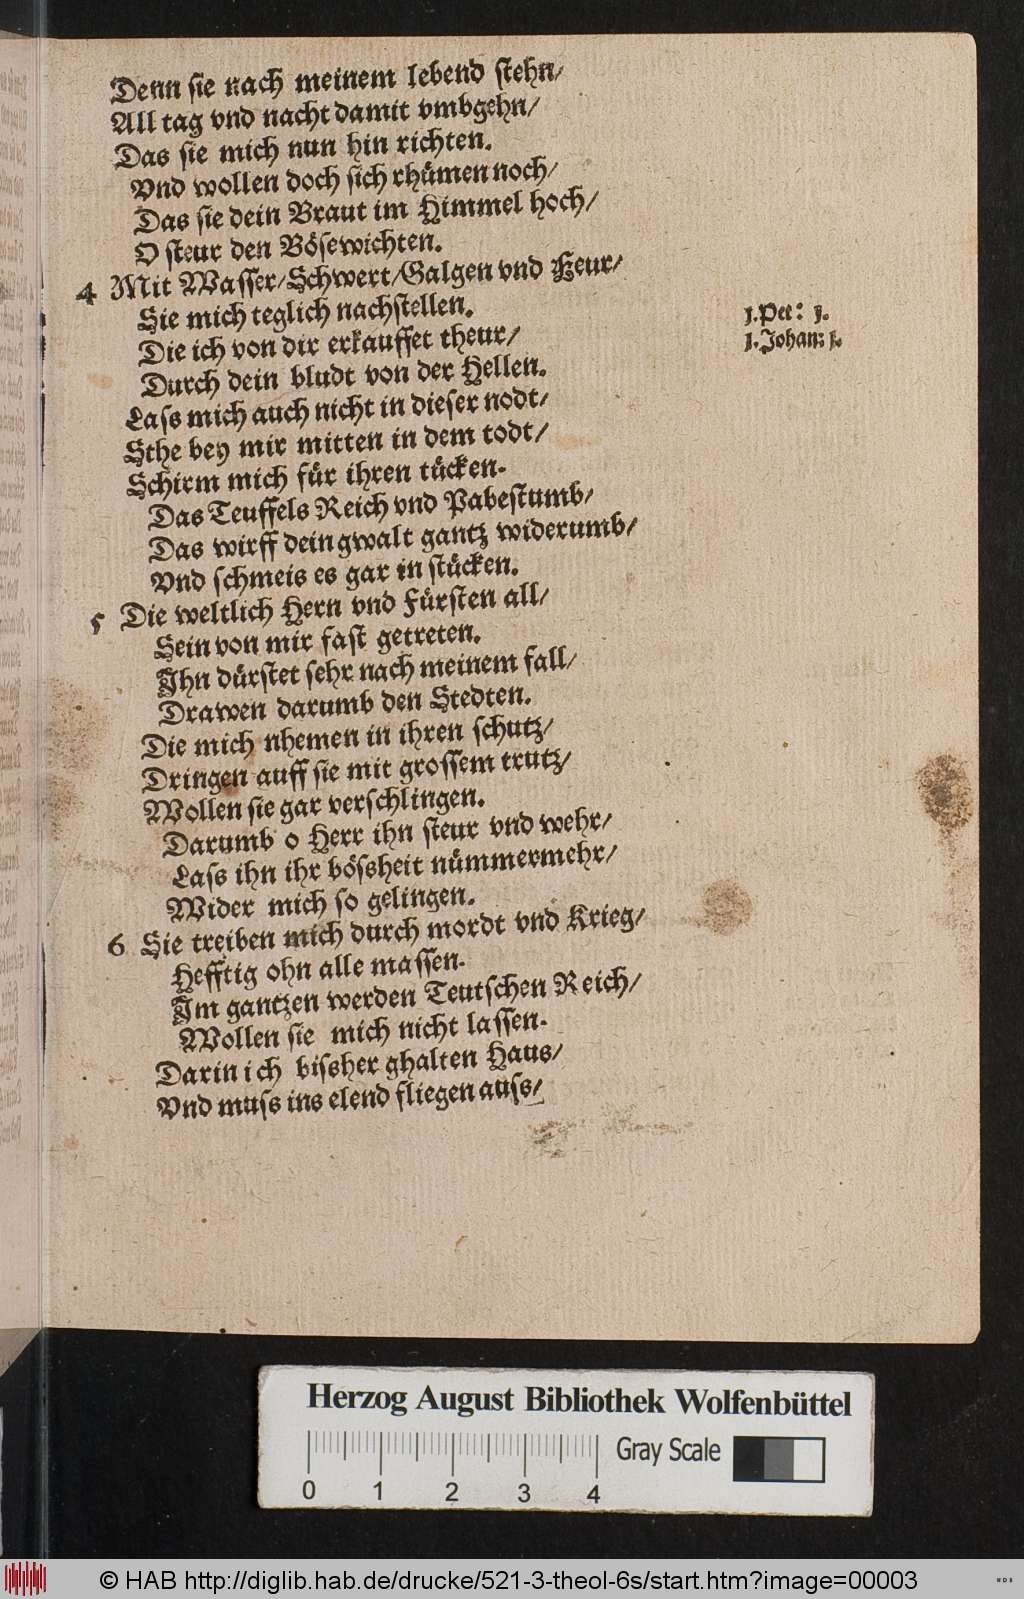 Denn sie nach meinem lebend stehn/
All tag vnd nacht damit vmbgehn/
Das sie mich nun hin richten.
Vnd wollen doch sich rhümen noch/
Das sie dein Braut im Himmel hoch/
O steur den Bösewichten.
4 Mit Wasser/Schwert/Galgen vnd Feur/
Sie mich teglich nachstellen.
1.Pet: 1.
Die ich von dir erkauffet theur/
1.Johan: 1.
Durch dein bludt von der Hellen.
Lass mich auch nicht in dieser nodt/
Sthe bey mir mitten in dem todt/
Schirm mich für ihren tücken.
Das Teuffels Reich vnd Pabestumb/
Das wirff dein gwalt gantz widerumb/
Vnd schmeis es gar in stücken.
5 Die weltlich Hern vnd Fürsten all/
Sein von mir fast getreten.
Ihn dürstet sehr nach meinem fall/
Drawen darumb den Stedten.
Die mich nhemen in ihren schutz/
Dringen auff sie mit grossem trutz/
Wollen sie gar verschlingen.
Darumb o Herr ihn steur vnd wehr/
Lass ihn ihr bössheit nümmermehr/
Wider mich so gelingen.
6 Sie treiben mich durch mordt vnd Krieg/
Hefftig ohn alle massen.
Im gantzen werden Teutschen Reich/
Wollen sie mich nicht lassen.
Darin ich bissher ghalten Haus/
Vnd muss ins elend fliegen auss/
Herzog August Bibliothek Wolfenbüttel
Gray Scale
0 1 2 3 4
© HAB http://diglib.hab.de/drucke/521-3-theol-6s/start.htm?image=00003